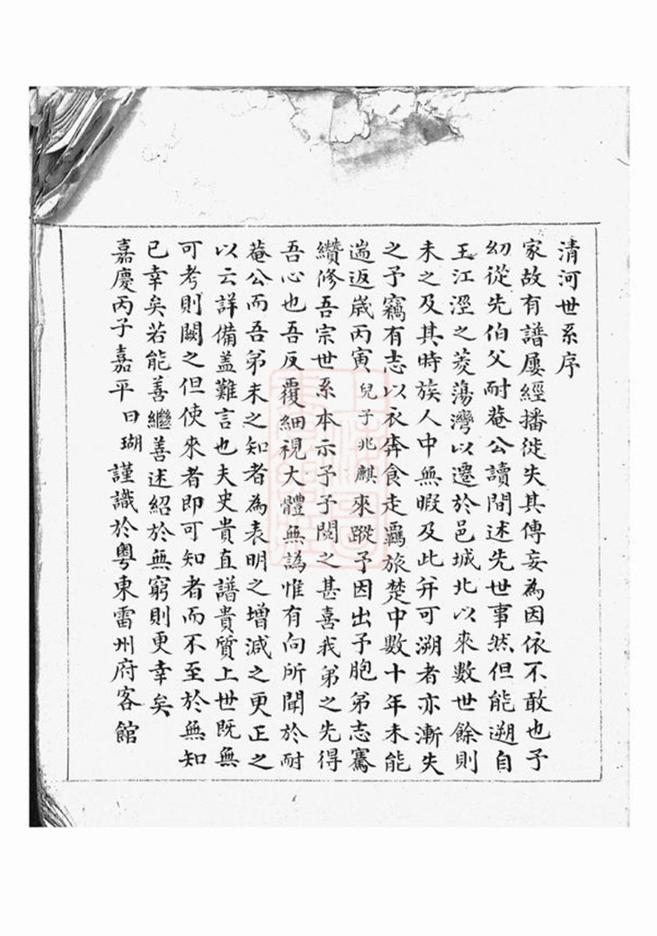 清河世系序
家故有譜屢經播徙失其傳妄為因依不敢也予
幼從先伯父耐菴公讀間述先世事然但能遡自
王江涇之菱蕩灣以遷於邑城北以來數世餘則
未之及其時族人中無暇及此并可溯者亦漸失
之予竊有志以衣奔食走羈旅楚中數十年未能
遄返歲丙寅兒子兆麒來蹤予因出予胞弟志騫
纘修吾宗世系本示予予閱之甚喜我弟之先得
吾心也吾反覆細視大體無譌惟有向所聞於耐
菴公而吾弟未之知者為表明之增減之更正之
以云詳備盖難言也夫史貴直譜貴質上世既無
可考則闕之但使來者即可知者而不至於無知
已幸矣若能善繼善述紹於無窮則更幸矣
嘉慶丙子嘉平日瑚謹識於粵東雷州府客館